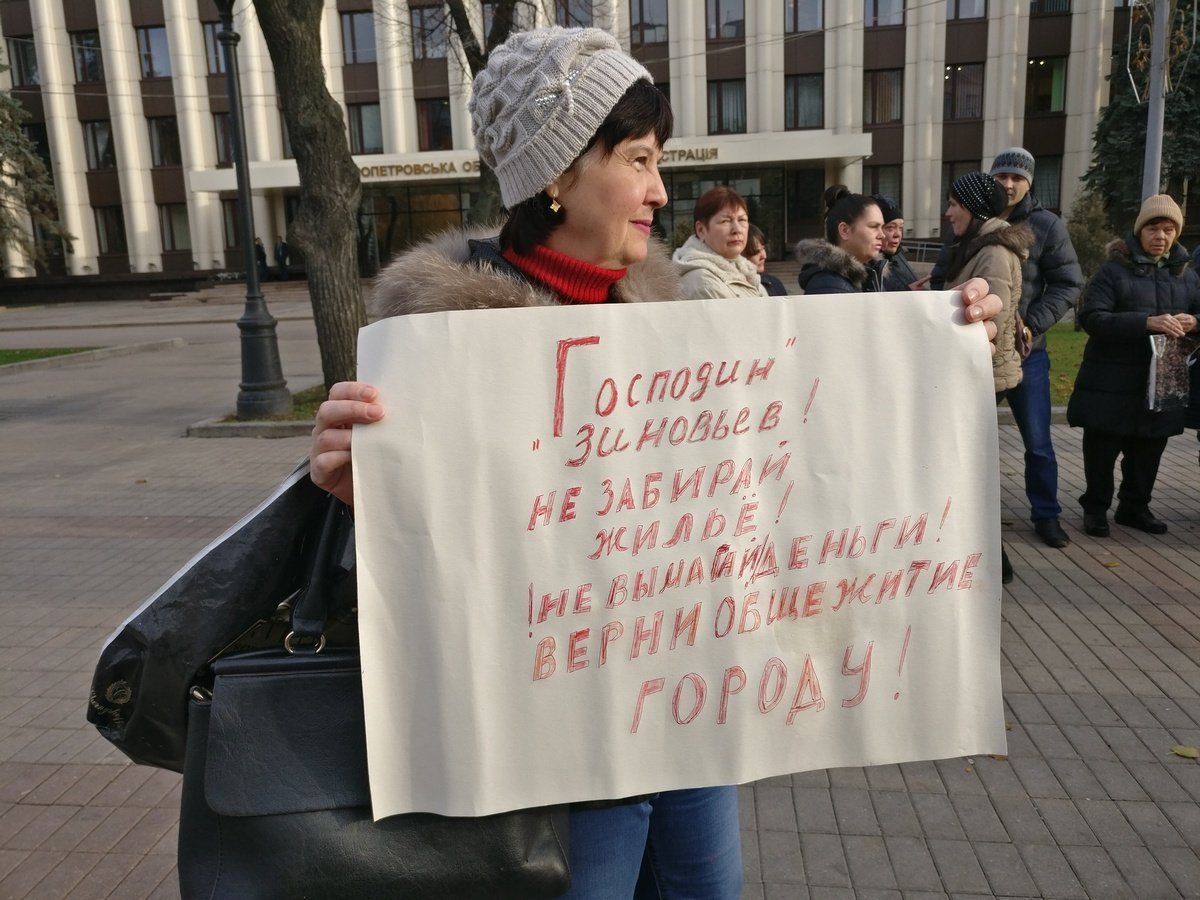 ОПЕТРОВСЬКА ОБ
СТРАЦІЯ
Господин"
"Зиновьев!
НЕ ЗАБИРАЙ
ЖИЛЬЁ!
!НЕ ВЫМА ДЕНЬГИ!
ВЕРНИ ОБЩЕЖИТИЕ
ГОРОДУ!